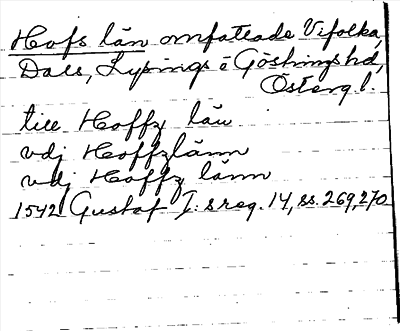 Hofs län omfattade Vifolka,
Dals, Lysings o Göstrings hd,
Österg l.
till Hoffz län
vdj Hoffzlänn
vdj Hoffz länn
1542 Gustaf I:s reg. 14, ss. 269, 270